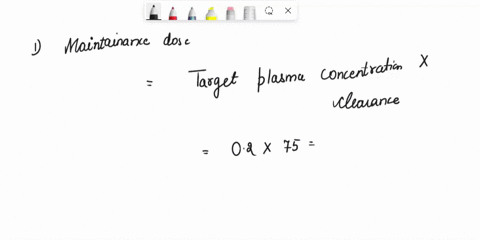 1) Maintainanxe dose
= Target plasma concentration X
clearance
= 0.2 X 75 =